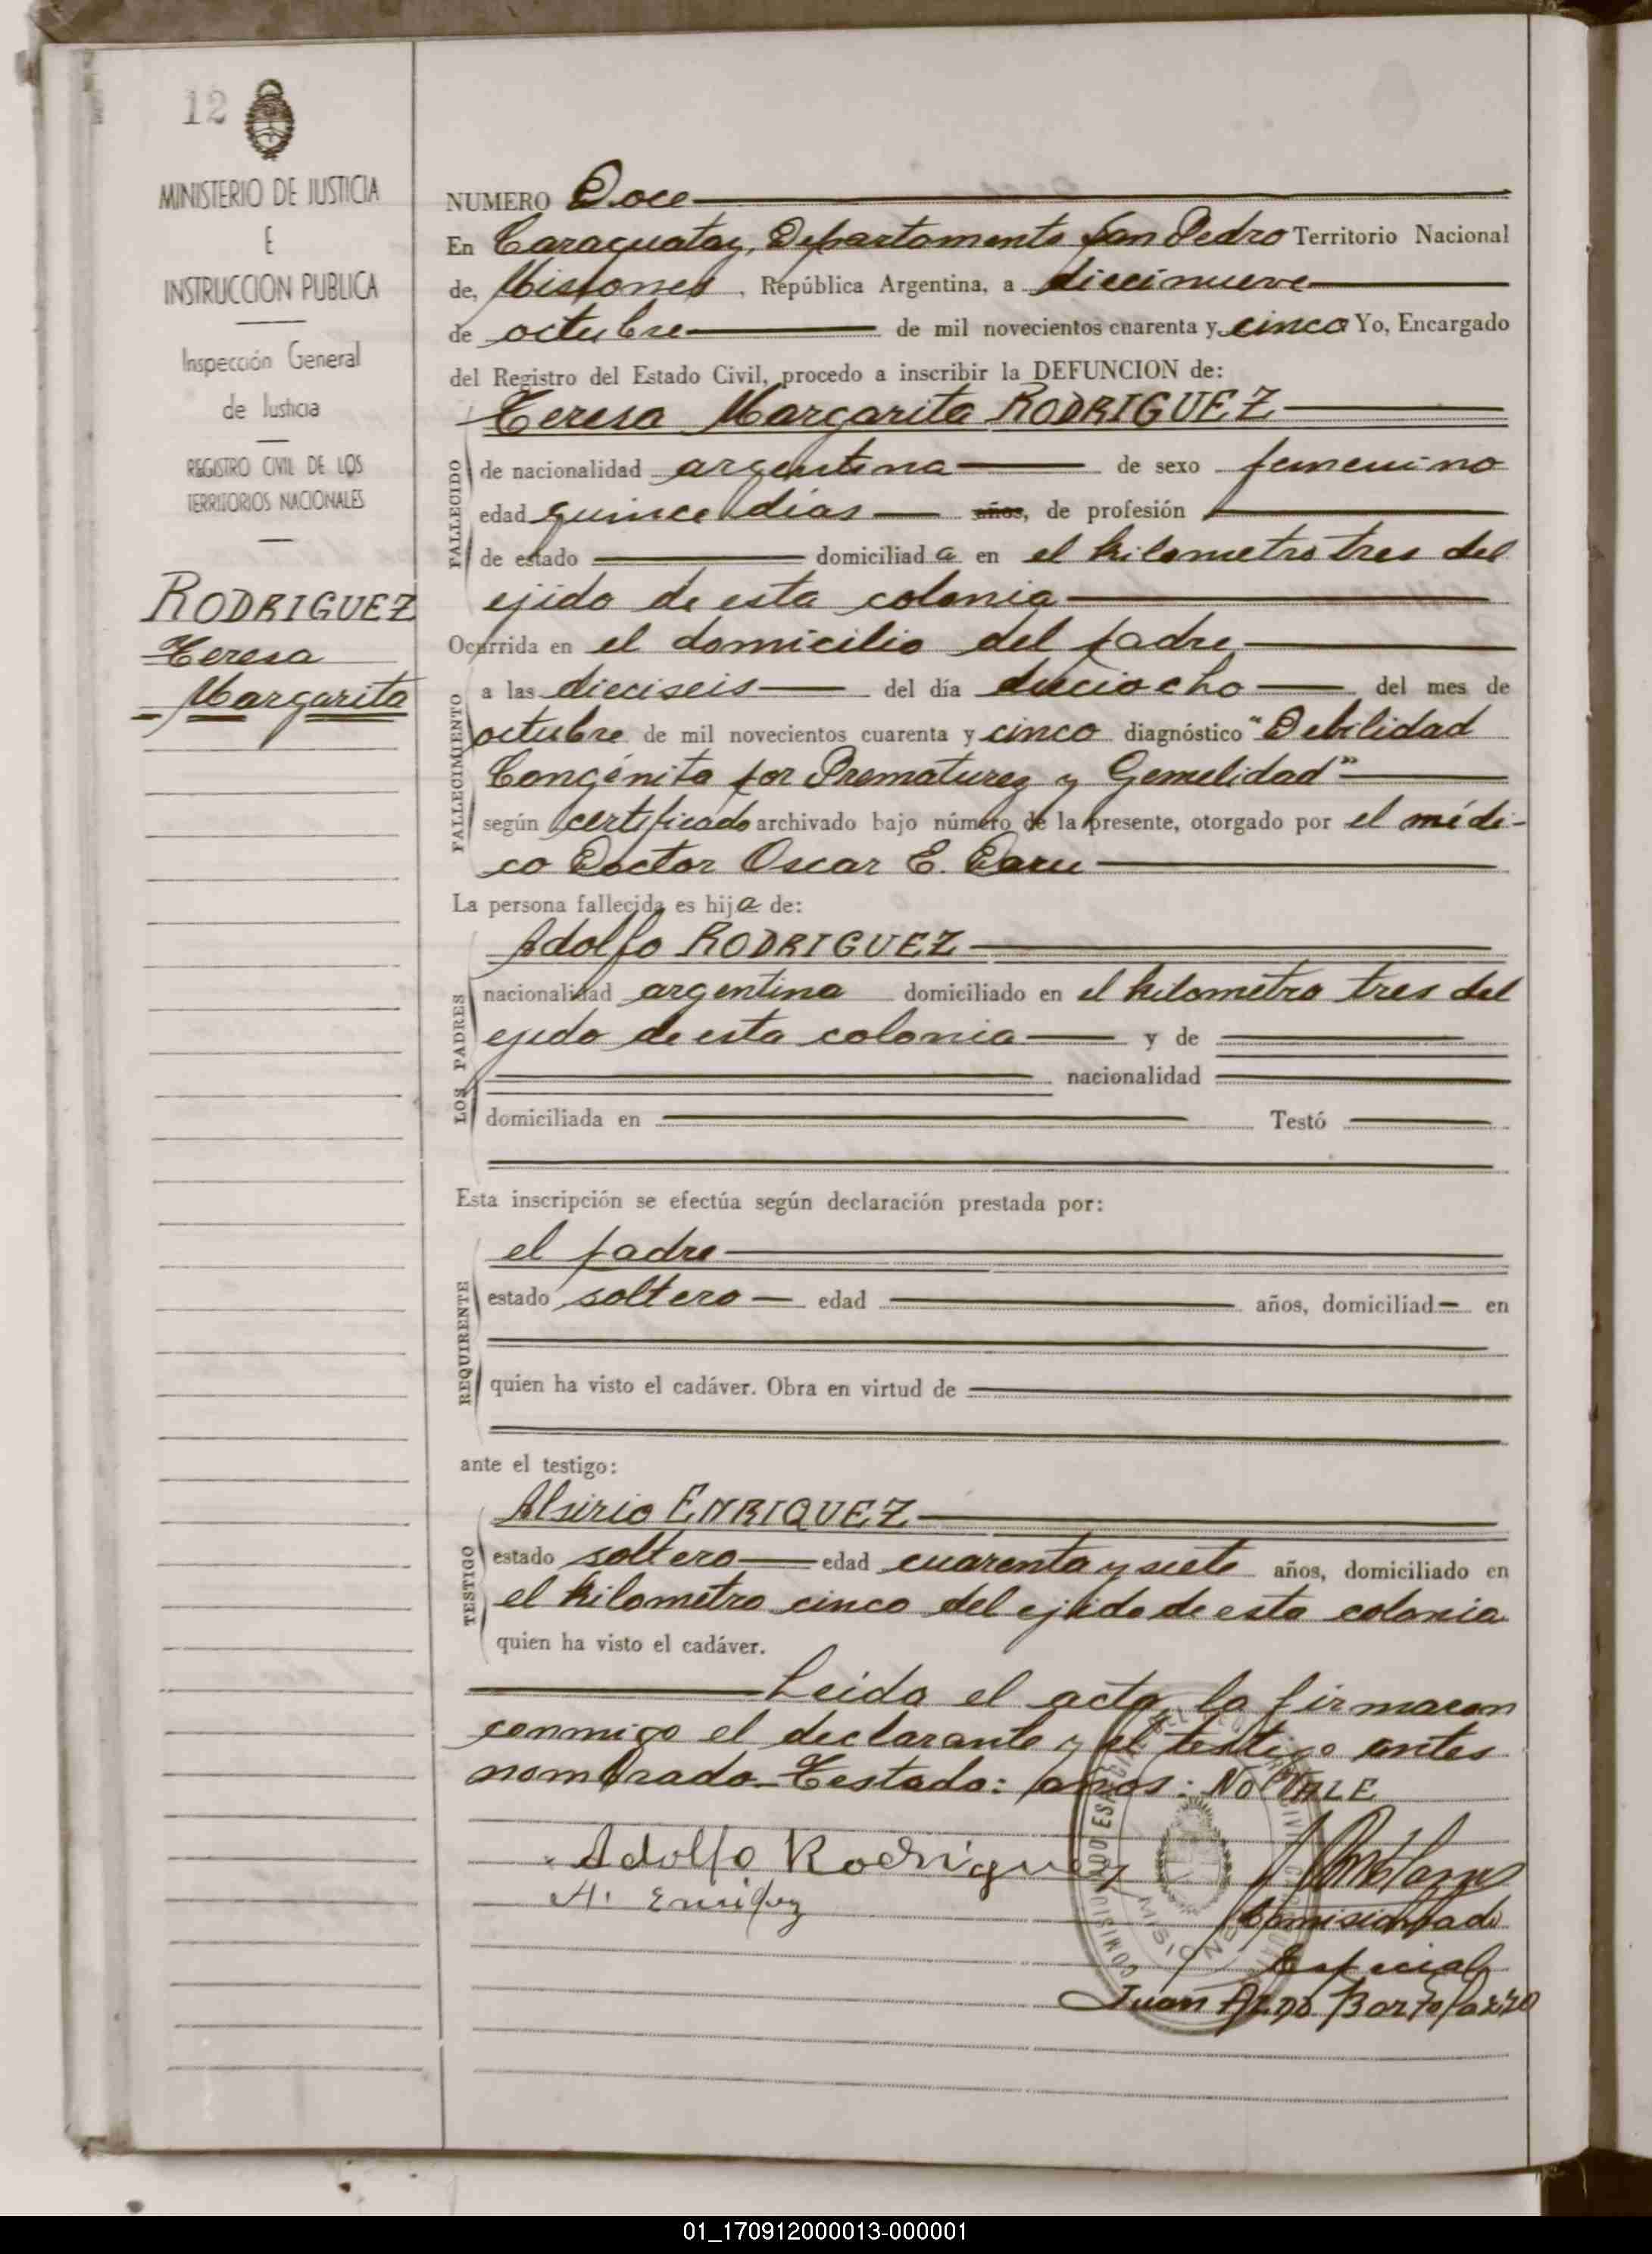 12
MINISTERIO DE JUSTICIA
E
INSTRUCCION PUBLICA
Inspección General
de Justicia
REGISTRO CIVIL DE LOS
TERRITORIOS NACIONALES
RODRIGUEZ
Teresa
Margarita
NUMERO Doce
En Caraguatay, Departamento San Pedro Territorio Nacional
de, Misiones, República Argentina, a diecinueve
de octubre de mil novecientos cuarenta y cinco Yo, Encargado
del Registro del Estado Civil, procedo a inscribir la DEFUNCION de:
Teresa Margarita RODRIGUEZ
FALLECIDO
de nacionalidad argentina de sexo femenino
edad quince días años, de profesión
de estado domiciliada en el kilometro tres del
ejido de esta colonia
Ocurrida en el domicilio del padre
FALLECIMIENTO
a las dieciseis del día dieciocho del mes de
octubre de mil novecientos cuarenta y cinco diagnóstico "Debilidad
Congénita por Prematurez y Gemelidad"
según certificado archivado bajo número de la presente, otorgado por el médi-
co Doctor Oscar E.
La persona fallecida es hija de:
LOS PADRES
Adolfo RODRIGUEZ
nacionalidad argentina domiciliado en el kilometro tres del
ejido de esta colonia y de
nacionalidad
domiciliada en Testó
Esta inscripción se efectúa según declaración prestada por:
REQUIRENTE
el padre
estado soltero edad años, domiciliad en
quien ha visto el cadáver. Obra en virtud de
ante el testigo:
TESTIGO
Alsirio ENRIQUEZ
estado soltero edad cuarenta y siete años, domiciliado en
el kilometro cinco del ejido de esta colonia
quien ha visto el cadáver.
Leida el acta, la firmaron
conmigo el declarante y el testigo antes
nombrado-Testado: años: NO VALE
Adolfo Rodriguez
A. Enriquez
Comisionado
Especial
Juan
MISIONES
01_170912000013-000001